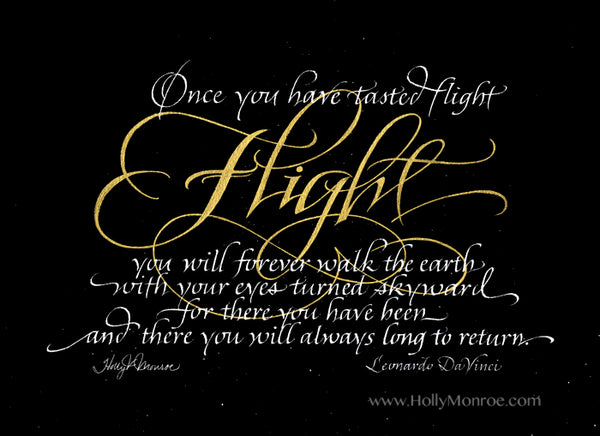 Once you have tasted flight
Flight
you will forever walk the earth
with your eyes turned skyward
for there you have been
and there you will always long to return.
Holly Monroe
Leonardo DaVinci
www.HollyMonroe.com